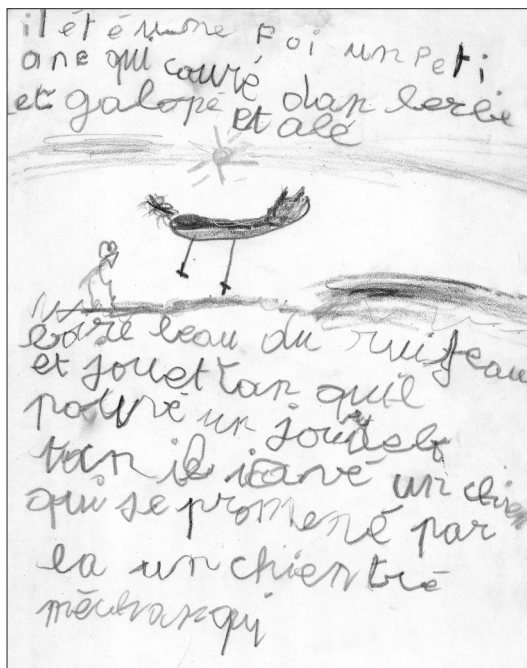 il été une foi un peti
ane qui couré
et galopé dan lerbe
et alé
boire leau du ruisseau
et jouet tan quil
pouvé un jour
tan il iavé un chien
qui se promené par
la un chien tré
méchan qui